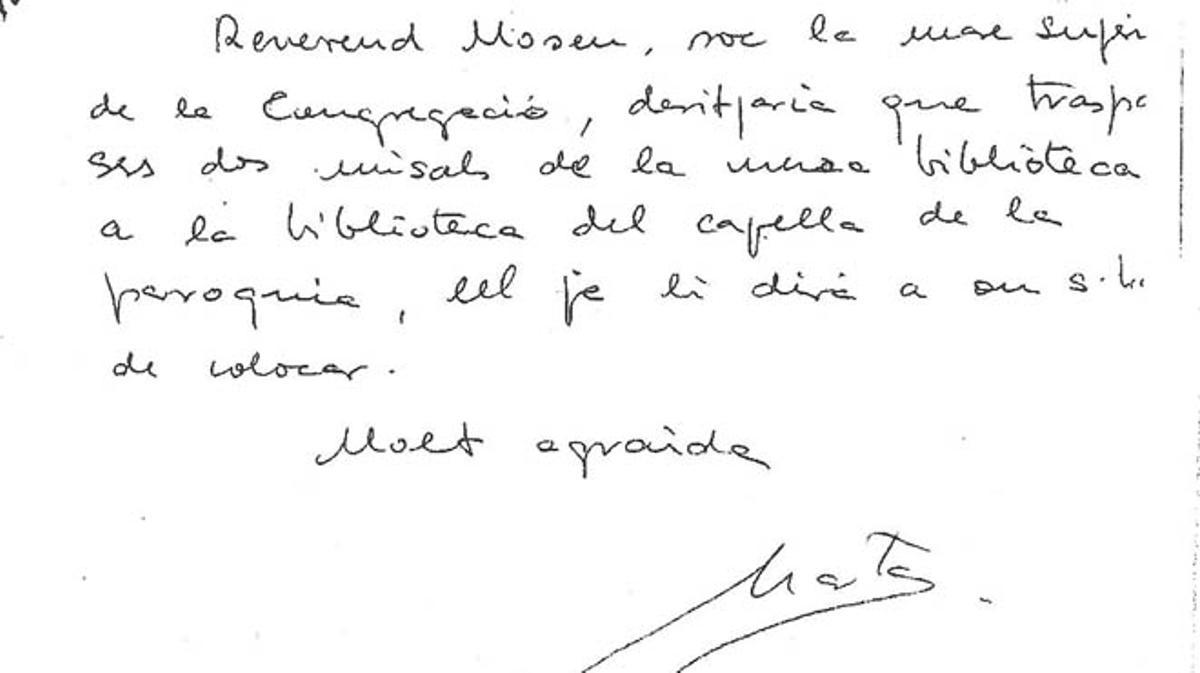 Reverend Mosen, soc la mare Super
de la Congregació, desitjaria que traspa
ses dos misals de la meva biblioteca
a la biblioteca del capella de la
paroquia, ell ja li dirà a on s·h
de colocar.
Molt agraïda
Marta